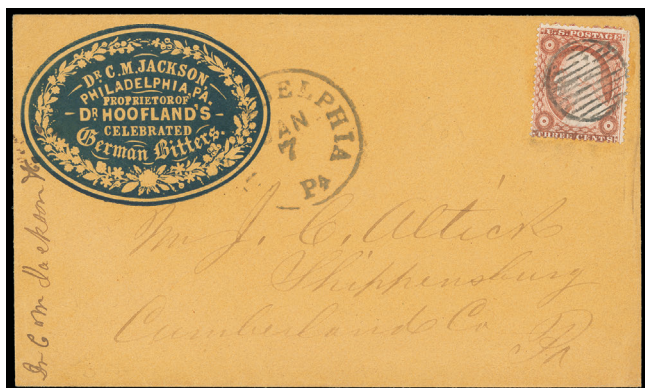 DR. C. M. JACKSON,
PHILADELPHIA, PA.
PROPRIETOR OF
DR HOOFLAND'S
CELEBRATED
German Bitters.
DELPHIA
JAN
7
Pa
U.S. POSTAGE
THREE CENTS
Mr J. C. Altick
Shippensburg
Cumberland Co
Pa
Dr C M Jackson